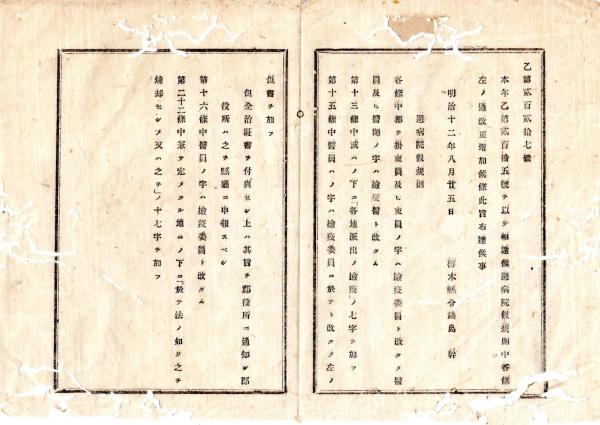 乙第貳百貳拾七號
本年乙第貳百拾五號ヲ以テ相達候避病院假規則中各條
左ノ通改正增加候條此旨布達候事
明治十二年八月廿五日　栃木縣令鍋島 幹
避病院假規則
各條中都テ掛吏員及ヒ吏員ノ字ハ檢疫委員ト改メ醫
員及ヒ醫師ノ字ハ檢疫醫ト改ム
第十三條中或ハノ下ニ「各地派出ノ檢疫」ノ七字ヲ加フ
第十五條中醫員ハノ字ハ檢疫委員ニ於テト改メ左ノ
但書ヲ加フ
但全治証書ヲ付與セシ上ハ其旨ヲ郡役所ニ通知シ郡
役所ハ之ヲ縣廳ニ申報スベシ
第十六條中醫員ノ字ハ檢疫委員ト改ム
第二十二條中兼テ定メタル地ニノ下ニ「於テ法ノ如ク之ヲ
燒却セシメ又ハ之ヲ」ノ十七字ヲ加フ